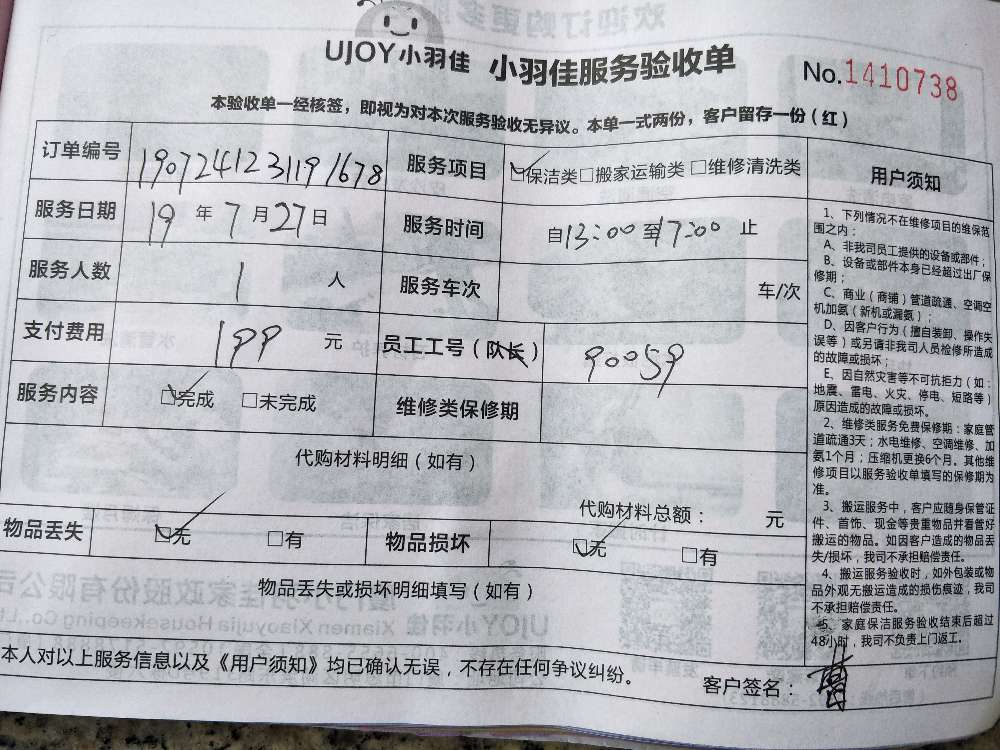 UJOY小羽佳 小羽佳服务验收单 No.1410738
本验收单一经核签，即视为对本次服务验收无异议。本单一式两份，客户留存一份（红）
订单编号 190724123119 1678 服务项目 保洁类 搬家运输类 维修清洗类
服务日期 19 年 7 月 27 日 服务时间 自13:00至17:00 止
服务人数 1 人 服务车次 车/次
支付费用 199 元 员工工号（队长） 90059
服务内容 完成 未完成 维修类保修期
代购材料明细（如有）
代购材料总额： 元
物品丢失 无 有 物品损坏 无 有
物品丢失或损坏明细填写（如有）
本人对以上服务信息以及《用户须知》均已确认无误，不存在任何争议纠纷。
客户签名：
用户须知
1、下列情况不在维修项目的维保范
围之内：
A、非我司员工提供的设备或部件；
B、设备或部件本身已经超过出厂保
修期；
C、商业（商铺）管道疏通、空调空
机加氨（新机或漏氨）；
D、因客户行为（擅自装卸、操作失
误等）或另请非我司人员检修所造成
的故障或损坏；
E、因自然灾害等不可抗拒力（如：
地震、雷电、火灾、停电、短路等）
原因造成的故障或损坏。
2、维修类服务免费保修期：家庭管
道疏通3天；水电维修、空调维修、加
氨1个月；压缩机更换6个月。其他维
修项目以服务验收单填写的保修期为
准。
3、搬运服务中，客户应随身保管证
件、首饰、现金等贵重物品并看管好
搬运的物品。如因客户造成的物品丢
失/损坏，我司不承担赔偿责任。
4、搬运服务验收时，如外包装或物
品外观无搬运造成的损伤痕迹，我司
不承担赔偿责任。
5、家庭保洁服务验收结束后超过
48小时，我司不负责上门返工。